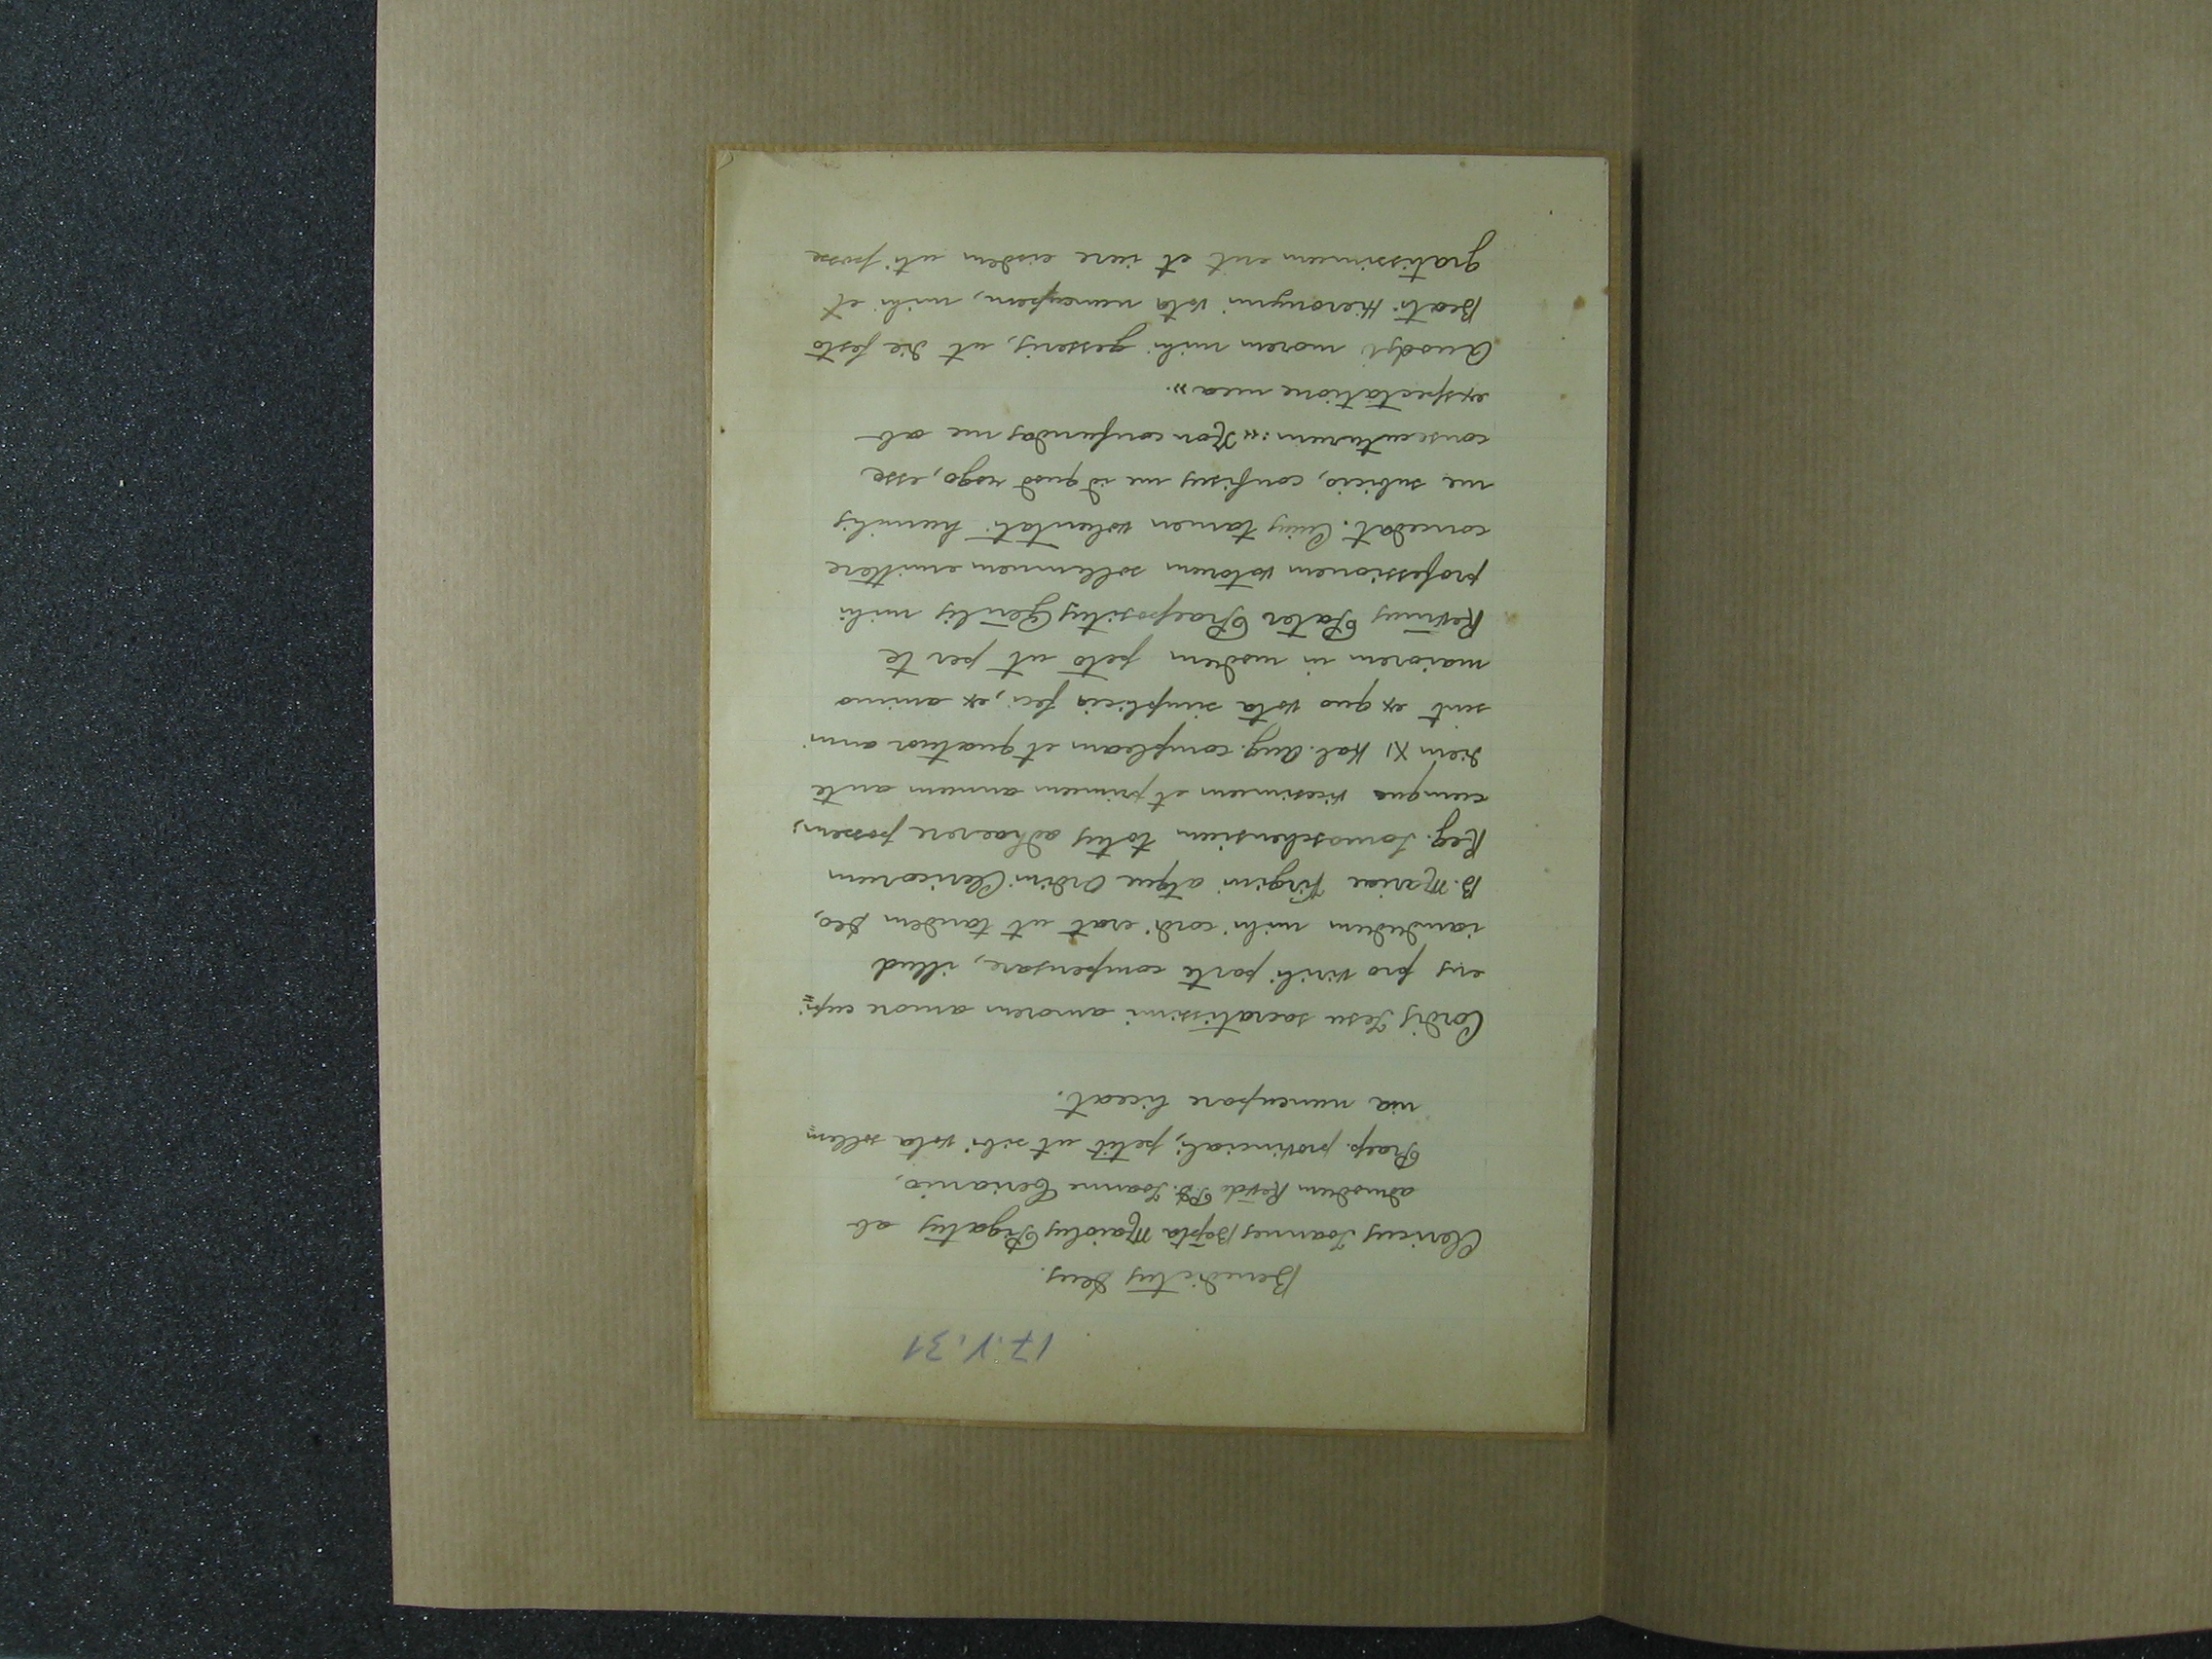 17.V.31
Benedictus Deus.
Clericus Joannes Bapta Maiolus Pigatus ab
admodum Revdo P.D. Joanne Ceriani,
Praep. provinciali, petit ut sibi vota solem=
nia nuncupare liceat.
Cordis Jesu sacratissimi amorem amore cupi=
ens pro virili parte compensare, illud
iamdudum mihi cordi erat ut tandem Deo,
B. Mariae Virgini atque Ordini Clericorum
Reg. Somaschensium totus adhaerere possem;
cumque vicesimum et primum annum ante
diem XI Kal. Aug. compleam et quatuor anni
sint ex quo vota simplicia feci, ex animo
maiorem in modum peto ut per te
Revmus Pater Praepositus Genlis mihi
professionem votorum solemnem emittere
concedat. Cuius tamen voluntati humilis
me subicio, confisus me id quod rogo, esse
consecuturum: "Non confundas me ab
expectatione mea".
Quodsi morem mihi gesseris, ut die festo
Beati Hieronymi vota nuncupem, mihi et
gratissimum erit et iure eisdem uti posse